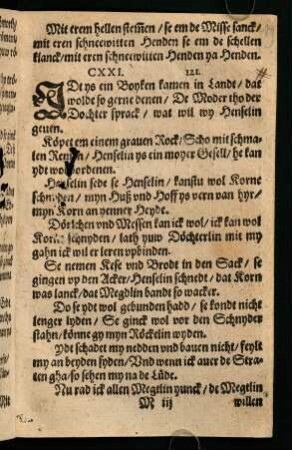 Mit erem hellen stemen / se em de Misse sanck /
mit eren schneewitten Henden se em de schellen
klanck / mit eren schneewitten Henden ya Henden.
CXXI. 121.
IDt ys ein Boyken kamen in Landt / dat
wolde so gerne denen / De Moder tho der
Dochter sprack / wat wil wy Henselin
geuen.
Köpet em einem grauen Rock / Scho mit schma-
len / Henselin ys ein moyer Gesell / he kan
ydt wol vordenen.
Henselin sede se Henselin / kanstu wol Korne
schnyden / myn Huß vnd Hoff ys vern van hyr /
myn Korn an yenner Heydt.
Dörschen vnd Messen kan ick wol / ick kan wol
Korne schnyden / lath yuw Döchterlin mit my
gahn ick wil er leren vpbinden.
Se nemen Kese vnd Brodt in den Sack / se
gingen vp den Acker / Henselin schnedt / dat Korn
was lanck / dat Megdlin bandt so wacker.
Do se ydt wol gebunden hadd / se kondt nicht
lenger lyden / Se ginck wol vor den Schnyder
stahn / könne gy myn Röckelin wyden.
Ydt schadet my nedden vnd bauen nicht / feylt
my an beyden syden / Vnd wenn ick auer de Stra-
ten gha / so sehen my na de Lüde.
Nu rad ick allen Megtlin yunck / de Megtlin
M iij willen